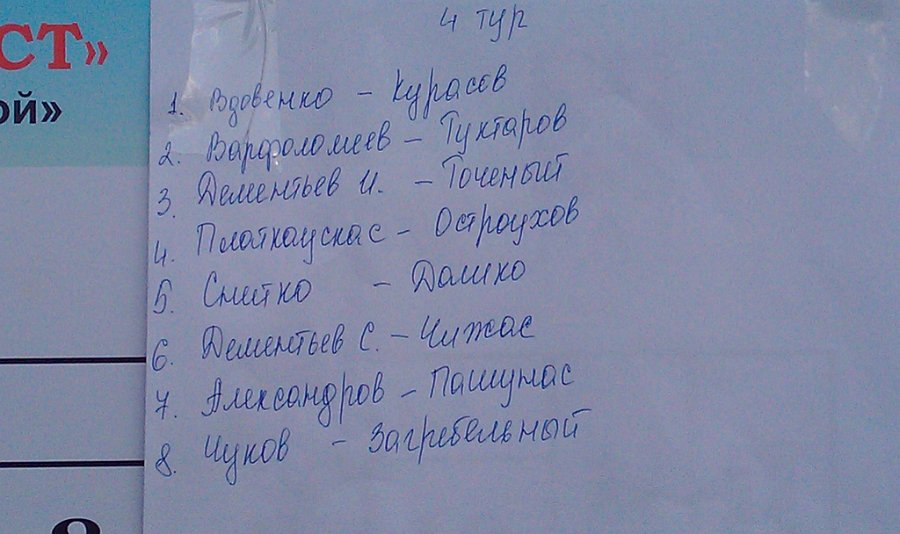 СТ»
ой»
4 тур
1. Вдовенко - Курасов
2. Варфоломеев - Туктаров
3. Дементьев И. - Точеный
4. Платкаускас - Остроухов
5. Снитко - Далико
6. Дементьев С. - Чижас
7. Александров - Пашунас
8. Чуков - Загребельный